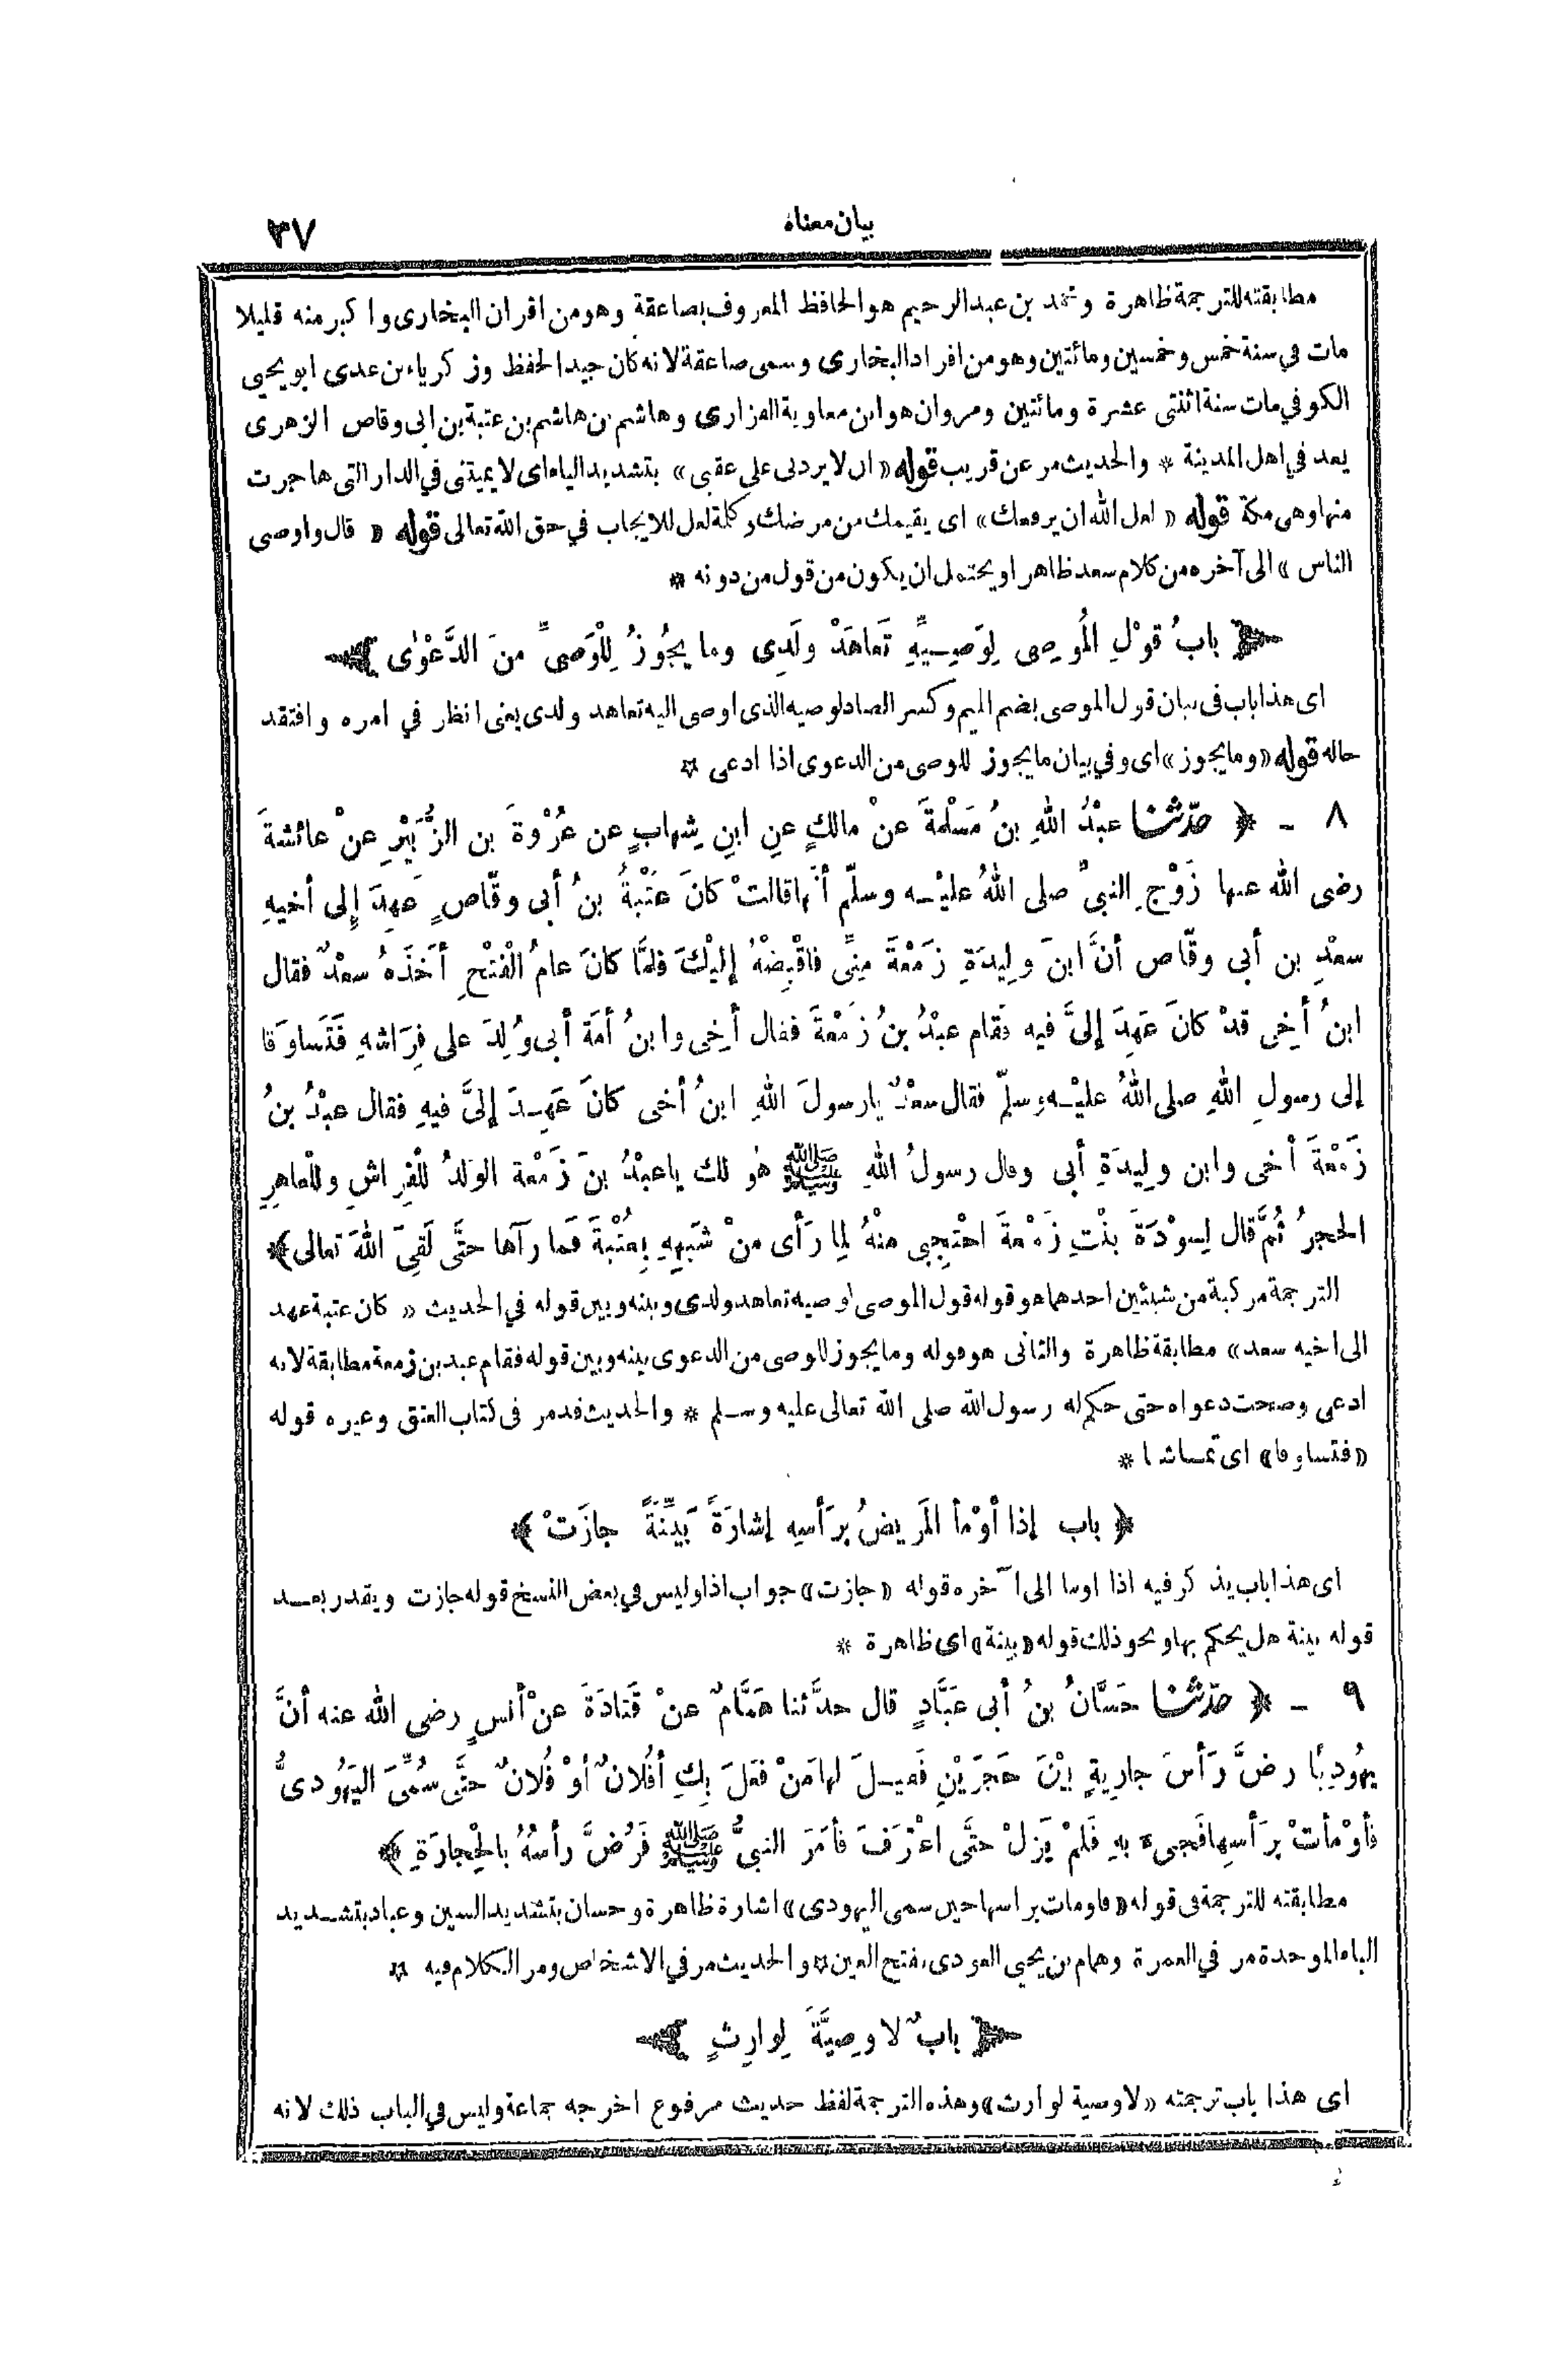 بيان معناه
٣٧
مطابقته للترجمة ظاهرة ومحمد بن عبد الرحيم هو الحافظ المعروف بصاعقة وهو من اقران البخارى واكبر منه قليلا
مات في سنة خمس وخمسين ومائتين وهو من افراد البخارى وسمى صاعقة لانه كان جيد الحفظ وزكرياء بن عدى ابو يحيى
الكوفي مات سنة اثنتى عشرة ومائتين ومروان هو ابن معاوية الفزارى وهاشم بن هاشم بن عتبة بن ابى وقاص الزهرى
يعد في اهل المدينة * والحديث مر عن قريب قوله «ان لا يردنى على عقبى» بتشديد الياء اى لا يميتنى في الدار التى هاجرت
منها وهى مكة قوله «لعل الله ان يرفعك» اى يقيمك من مرضك وكلمة لعل للايجاب في حق الله تعالى قوله «قال واوصى
الناس» الى آخره من كلام سعد ظاهرا ويحتمل ان يكون من قول من دونه *
﴿ بابُ قَوْلِ المُوصِى لِوَصِيِّهِ تَعاهَدْ ولَدِى وما يجُوزُ لِلْوَصىِّ منَ الدَّعْوٰى ﴾
اى هذا باب فى بيان قول الموصى بضم الميم وكسر الصاد لوصيه الذى اوصى اليه تعاهد ولدى يعنى انظر في امره وافتقد
حاله قوله «وما يجوز» اى وفي بيان ما يجوز للوصى من الدعوى اذا ادعى *
٨ - ﴿ حدّثنا عبْدُ اللهِ بنُ مَسْلَمةَ عنْ مالكٍ عنِ ابنِ شِهابٍ عن عُرْوةَ بن الزُّبَيْرِ عنْ عائشةَ
رضى الله عنها زَوْجِ النبىِّ صلى اللهُ عليْه وسلّم أنّها قالتْ كانَ عتْبةُ بنُ أبى وقّاصٍ عَهِدَ إلى أخيهِ
سعْدِ بن أبى وقّاص أنَّ ابنَ ولِيدَةِ زَمْعَةَ مِنِّى فاقْبِضْهُ إليْكَ فلمَّا كانَ عامُ الْفَتْحِ أخَذَهُ سعْدٌ فقال
ابنُ أخِى قدْ كانَ عَهِدَ إلىَّ فيه فقام عبْدُ بنُ زَمْعَةَ فقال أخِى وابنُ أمَة أبى وُلِدَ على فِرَاشهِ فَتَساوَقا
إلى رسولِ اللهِ صلى اللهُ عليْه وسلّم فقال سعْدٌ يارسولَ اللهِ ابنُ أخى كانَ عَهِدَ إلىَّ فيهِ فقال عبْدُ بنُ
زَمْعَةَ أخى وابن ولِيدَةِ أبى وقال رسولُ اللهِ ﷺ هُو لك ياعبْدُ بنَ زَمْعة الولَدُ للْفِراشِ وللْعاهِرِ
الحجرُ ثُمَّ قال لِسوْدَةَ بنْتِ زَمْعةَ احْتجِبى منْهُ لِما رَأى منْ شَبَهِهِ بِعُتْبةَ فما رآها حتَّى لَقِىَ اللهَ تعالى﴾
الترجمة مركبة من شيئين احدهما هو قوله قول الموصى لوصيه تعاهد ولدى وبينه وبين قوله في الحديث «كان عتبة عهد
الى اخيه سعد» مطابقة ظاهرة والثانى هو قوله وما يجوز للوصى من الدعوى بينه وبين قوله فقام عبد بن زمعة مطابقة لانه
ادعى وصحت دعواه حتى حكم له رسول الله صلى الله تعالى عليه وسلم * والحديث قد مر فى كتاب العتق وغيره قوله
«فتساوقا» اى تماشيا *
﴿ باب إذا أوْمأ المَريضُ برَأسِهِ إشارَةً بَيِّنَةً جازَتْ ﴾
اى هذا باب يذكر فيه اذا اوما الى آخره قوله «جازت» جواب اذا وليس في بعض النسخ قوله جازت ويقدر بعد
قوله بينة هل يحكم بها ونحو ذلك قوله «بينة» اى ظاهرة *
٩ - ﴿ حدّثنا حَسَّانُ بنُ أبى عَبَّادٍ قال حدَّثنا هَمَّامٌ عنْ قَتادَةَ عنْ أنسٍ رضى الله عنه أنَّ
يهُودِيًّا رضَّ رَأسَ جارِيةٍ بيْنَ حَجَرَيْنِ فَقيلَ لها مَنْ فَعَلَ بِكِ أفُلانٌ أوْ فُلانٌ حتَّى سُمِّىَ اليَهُودىُّ
فأوْمأتْ برَأسِها فَجىءَ بهِ فَلمْ يَزلْ حتَّى اعْتَرَفَ فأمَرَ النبىُّ ﷺ فَرُضَّ رأسُهُ بالحِْجارَةِ ﴾
مطابقته للترجمة فى قوله «فاومات براسها حين سمى اليهودى» اشارة ظاهرة وحسان بتشديد السين وعباد بتشديد
الباء الموحدة مر في العمرة وهمام بن يحيى العوذى بفتح العين * والحديث مر في الاشخاص ومر الكلام فيه *
﴿ بابٌ لا وصِيَّةَ لِوارِثٍ ﴾
اى هذا باب ترجمته «لا وصية لوارث» وهذه الترجمة لفظ حديث مرفوع اخرجه جماعة وليس في الباب ذلك لانه